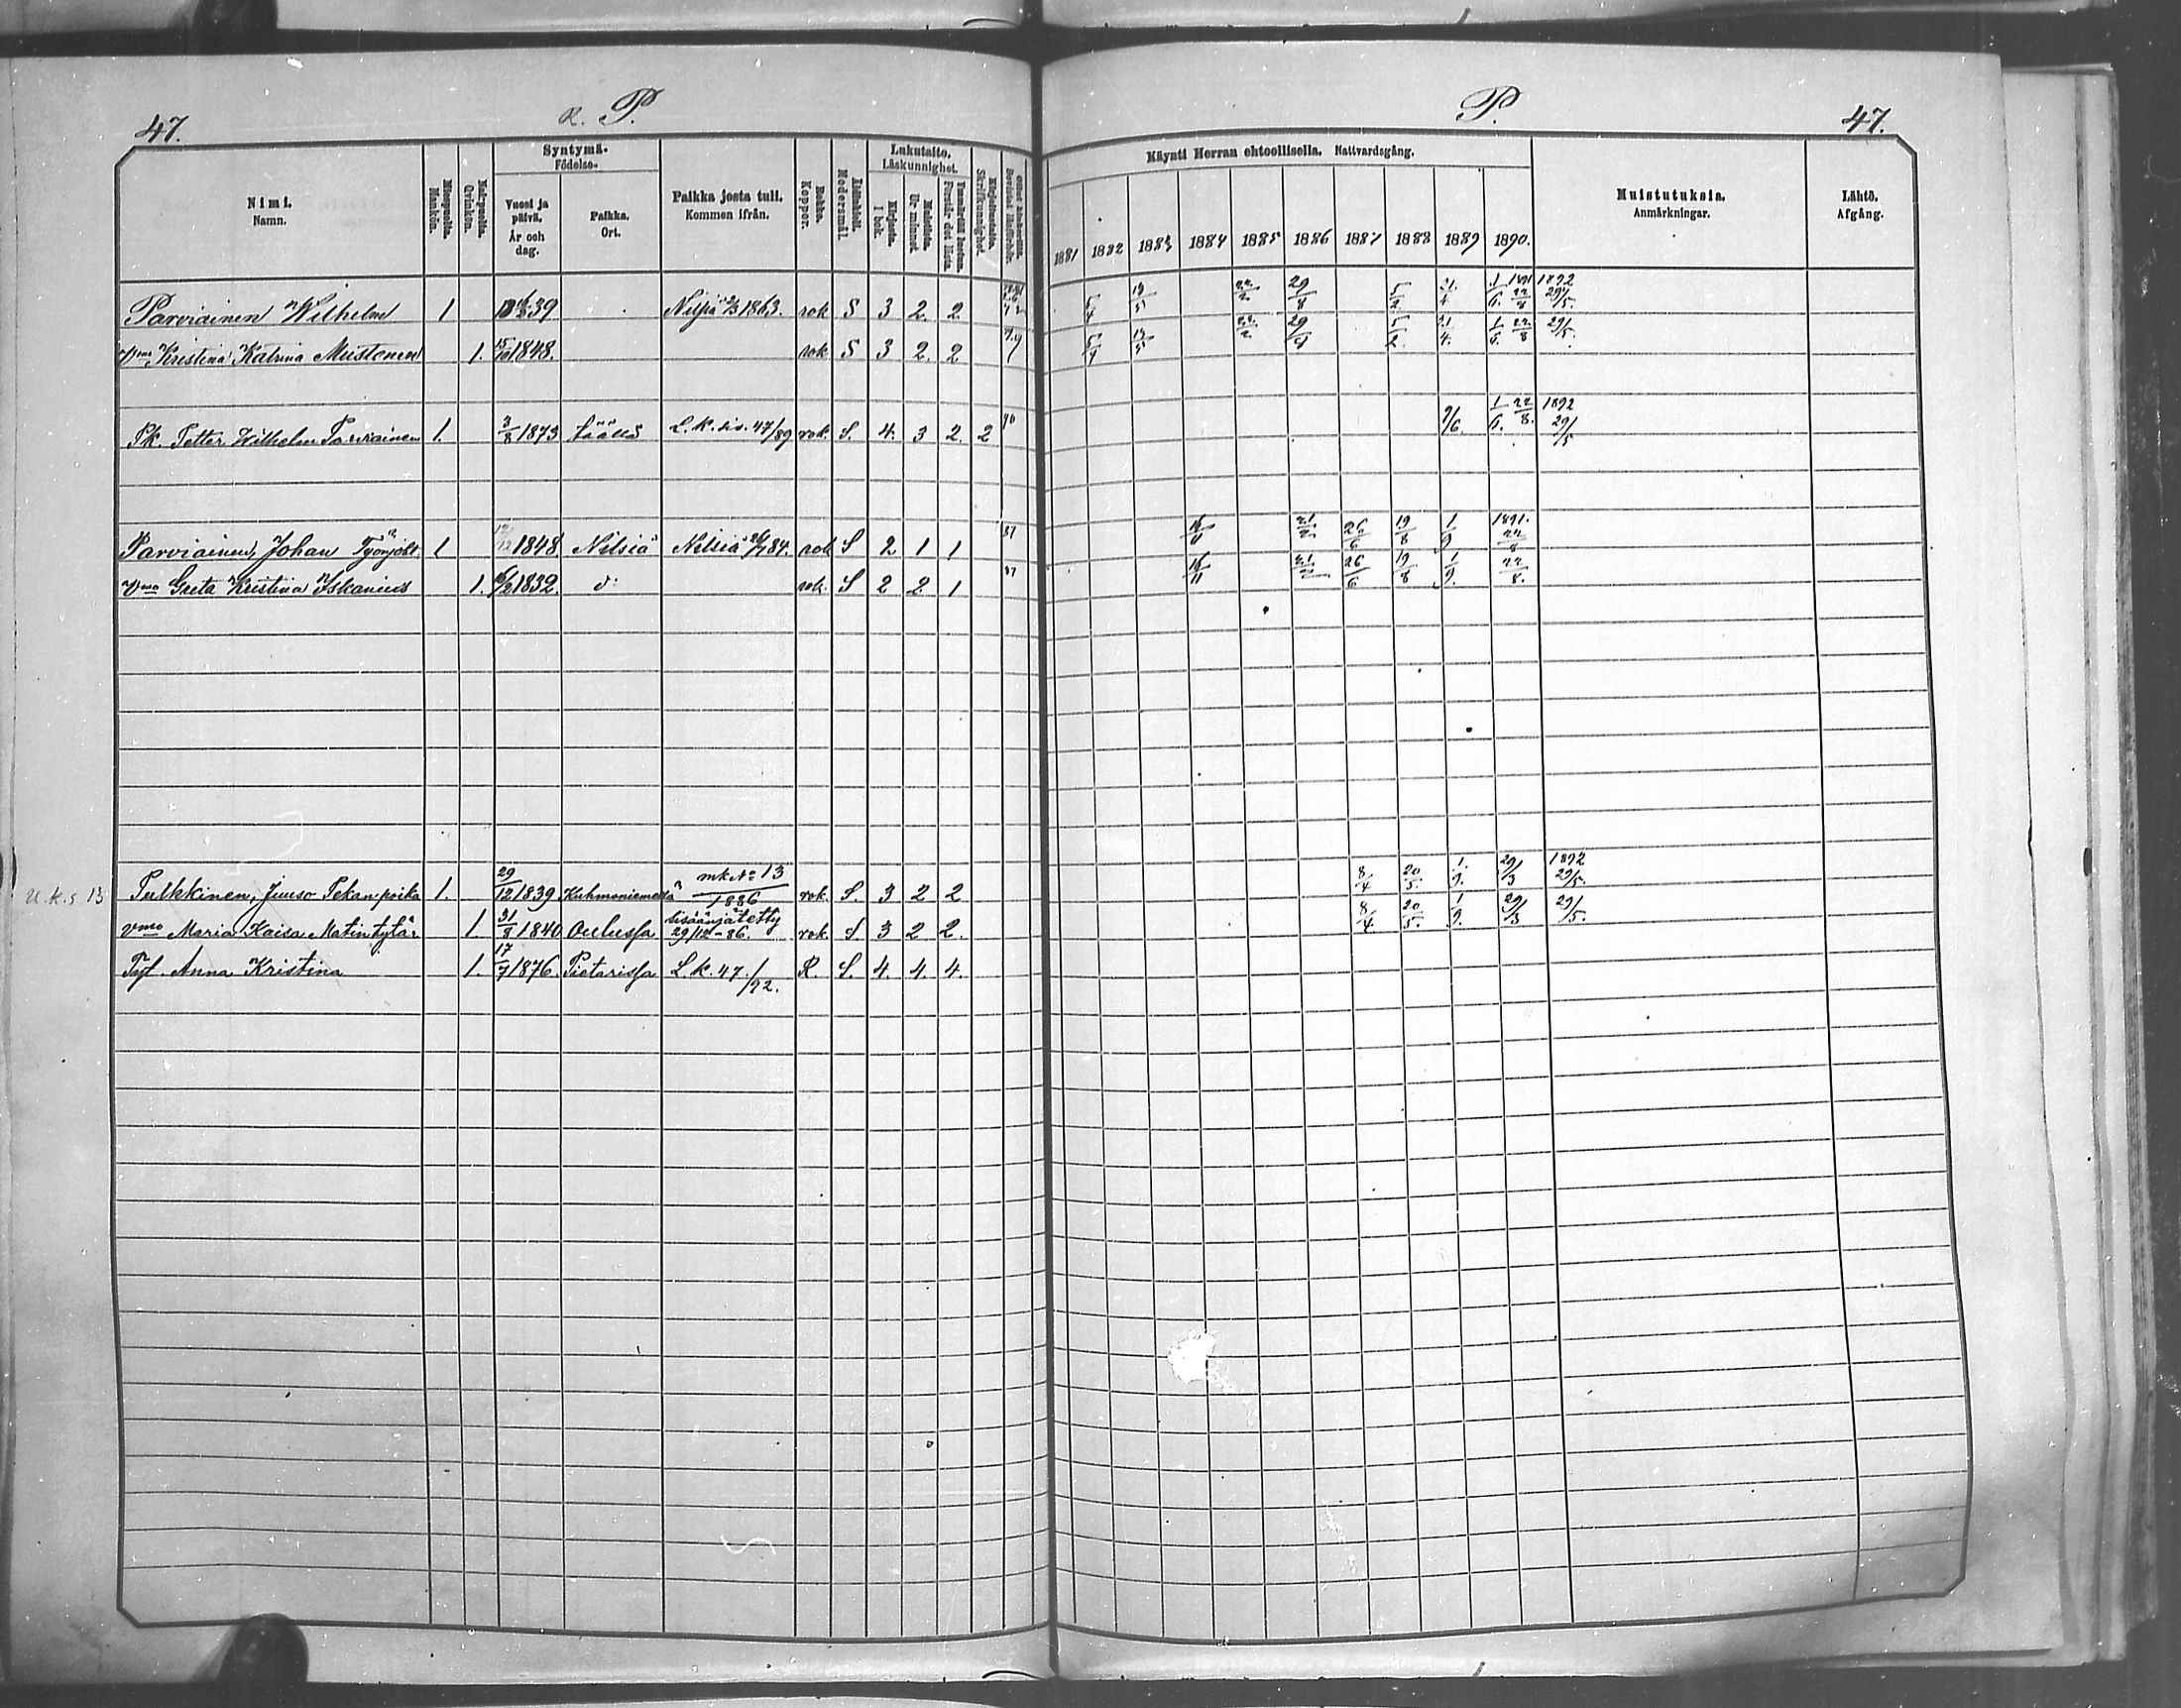 47. P. P. 47.
Nimi. Namn.
Miespuolia. Mankön.
Vaimopuolia. Qvinkön.
Syntymä. Födelse.
Vuosi ja päivä. År och dag.
Paikka. Ort.
Paikka josta tuli. Kommen ifrån.
Rokko. Koppor.
Äidinkieli. Modersmål.
Lukutaito. Läskunnighet.
Kirjasta. I bok.
Muistista. Ur minnet
Kirjoitustaito. Skrifkunnighet.
Käynti Herran ehtoollisella. Nattvardsgång.
1881 1882 1883 1884 1885 1886 1887 1888 1889 1890.
Muistutuksia. Anmärkningar.
Lähtö. Afgång.
Parviainen Wilhelm 1 39 Nilsiä 1863. rok S 3 2. 2. 5/4 13/5 22/2 29/8 5/2 21/4 1/6 1891 22/8 1892 29/5.
Vmo Kristina Katrina Mustonen 1. 15/10 1848. rok S 3 2. 2 5/4 13/5 22/2 29/8 5/2. 21/4. 1/6 22/8 29/5.
Pk. Petter Wilhelm Parviainen 1. 3/8 1873 L.k. siv. 47/89 rok. S. 4. 3 2. 2 90 9/6. 1/6. 22/8. 1892 29/5
Parviainen, Johan Työnjoht. 1 1848 Nilsiä Nilsiä 84. rok S 2 1 1 87 16/11 21/2 26/6 19/8 1/9 1891. 22/8
Vmo Greta Kristina 1. 6/2 1832. d: rok. S 2 2. 1 87 16/11 21/2 26/6 19/8 1/9. 22/8.
U.k.s 13 Pulkkinen, Juuso Pekanpoika 1. 29/12 1839 Kuhmoniemellä mk No 13/1886 rok. S. 3 2 2 8/4 20/5. 1./9. 29/3 1892 29/5.
vmo Maria Kaisa Matintytär 1. 31/8 1840 Oulussa sisäänjätetty 29/12-86. rok. S. 3 2 2. 8/4. 20/5. 1/9. 29/3 29/5.
Tyt. Anna Kristina 1. 17/7 1876. Pietarissa L.k. 47./92. R. S. 4. 4. 4.